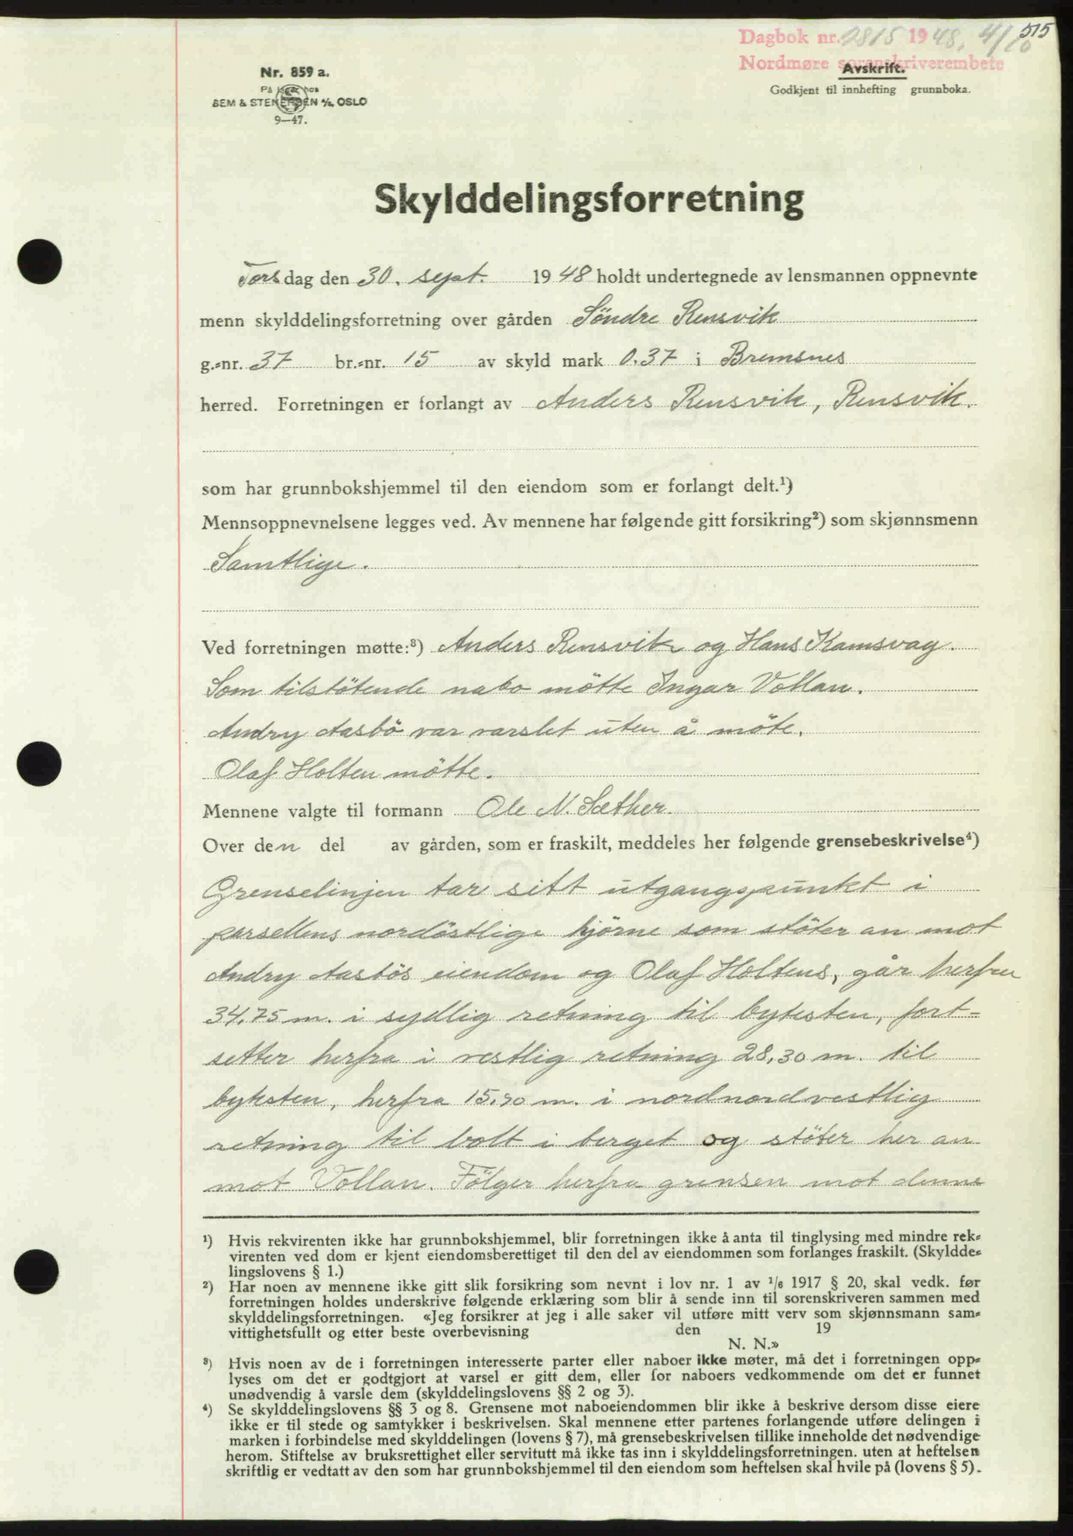 515
Dagbok nr. 2815 1948, 4/10
Nordmøre sorenskriverembete
Avskrift.
Godkjent til innhefting i grunnboka.
Nr. 859 a.
På lager hos
SEM & STENERSEN A/S, OSLO
9—47.
Skylddelingsforretning
Torsdag den 30. sept. 1948 holdt undertegnede av lensmannen oppnevnte
menn skylddelingsforretning over gården Söndre Rensvik
g.-nr. 37 br.-nr. 15 av skyld mark 0.37 i Bremsnes
herred. Forretningen er forlangt av Anders Rensvik, Rensvik.
som har grunnbokshjemmel til den eiendom som er forlangt delt.¹)
Mennsoppnevnelsene legges ved. Av mennene har følgende gitt forsikring²) som skjønnsmenn
Samtlige.
Ved forretningen møtte:³) Anders Rensvik og Hans Kamsvag.
Som tilstötende nabo mötte Ingar Vollan.
Andry Aasbö var varslet uten å möte.
Olaf Holten mötte.
Mennene valgte til formann Ole N. Sæther.
Over den del av gården, som er fraskilt, meddeles her følgende grensebeskrivelse⁴)
Grenselinjen tar sitt utgangspunkt i
parsellens nordöstlige hjörne som stöter an mot
Andry Aasbös eiendom og Olaf Holtens, går herfra
34,75 m. i sydlig retning til bytesten, fort-
setter herfra i vestlig retning 28,30 m. til
bytesten, herfra 15,90 m. i nordnordvestlig
retning til bolt i berget og stöter her an
mot Vollan. Fölger herfra grensen mot denne
¹) Hvis rekvirenten ikke har grunnbokshjemmel, blir forretningen ikke å anta til tinglysing med mindre rek-
virenten ved dom er kjent eiendomsberettiget til den del av eiendommen som forlanges fraskilt. (Skyldde-
lingslovens § 1.)
²) Har noen av mennene ikke gitt slik forsikring som nevnt i lov nr. 1 av 1/6 1917 § 20, skal vedk. før
forretningen holdes underskrive følgende erklæring som blir å sende inn til sorenskriveren sammen med
skylddelingsforretningen. «Jeg forsikrer at jeg i alle saker vil utføre mitt verv som skjønnsmann sam-
vittighetsfullt og etter beste overbevisning den 19
N. N.»
³) Hvis noen av de i forretningen interesserte parter eller naboer ikke møter, må det i forretningen opp-
lyses om det er godtgjort at varsel er gitt dem, eller for naboers vedkommende om det er funnet
unødvendig å varsle dem (skylddelingslovens §§ 2 og 3).
⁴) Se skylddelingslovens §§ 3 og 8. Grensene mot naboeiendommen blir ikke å beskrive dersom disse eiere
ikke er til stede og samtykker i beskrivelsen. Skal mennene etter partenes forlangende utføre delingen i
marken i forbindelse med skylddelingen (lovens § 7), må grensebeskrivelsen tillike inneholde det nødvendige
herom. Stiftelse av bruksrettighet eller servitutt må ikke tas inn i skylddelingsforretningen. uten at heftelsen
skriftlig er vedtatt av den som har grunnbokshjemmel til den eiendom som heftelsen skal hvile på (lovens § 5).